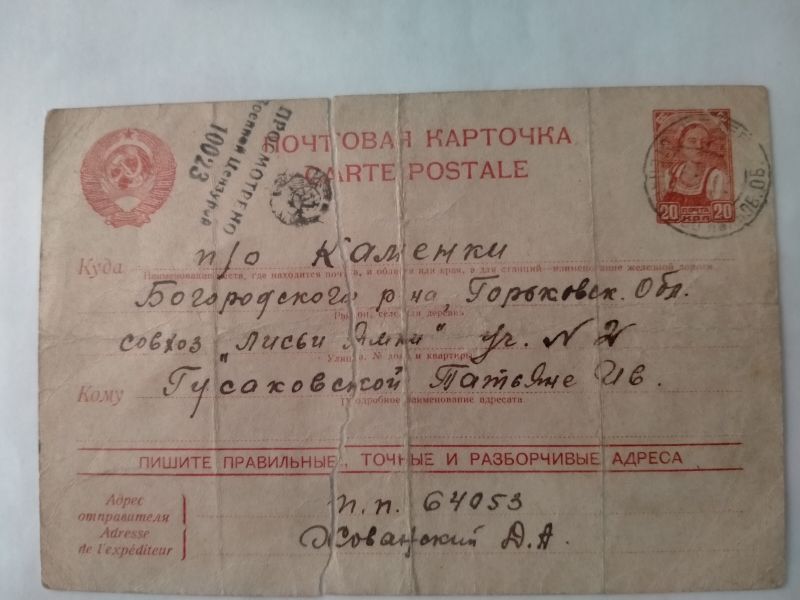 ПОЧТОВАЯ КАРТОЧКА
CARTE POSTALE
ПРОСМОТРЕНО
Военной Цензурой
10023
20 ПОЧТА 20
Куда п/о Каменки
Наименование места, где находится почта, и области или края, а для станций—наименование железной дороги
Богородского р-на, Горьковск. Обл.
Район, село или деревня
совхоз "Лисьи Ямки" уч. N 2
Улица, № дома и квартиры
Кому Гусаковской Татьяне Ив.
Подробное наименование адресата
ПИШИТЕ ПРАВИЛЬНЫЕ, ТОЧНЫЕ И РАЗБОРЧИВЫЕ АДРЕСА
Адрес
отправителя
Adresse
de l'expéditeur
п.п. 64053
Хованский Д.А.